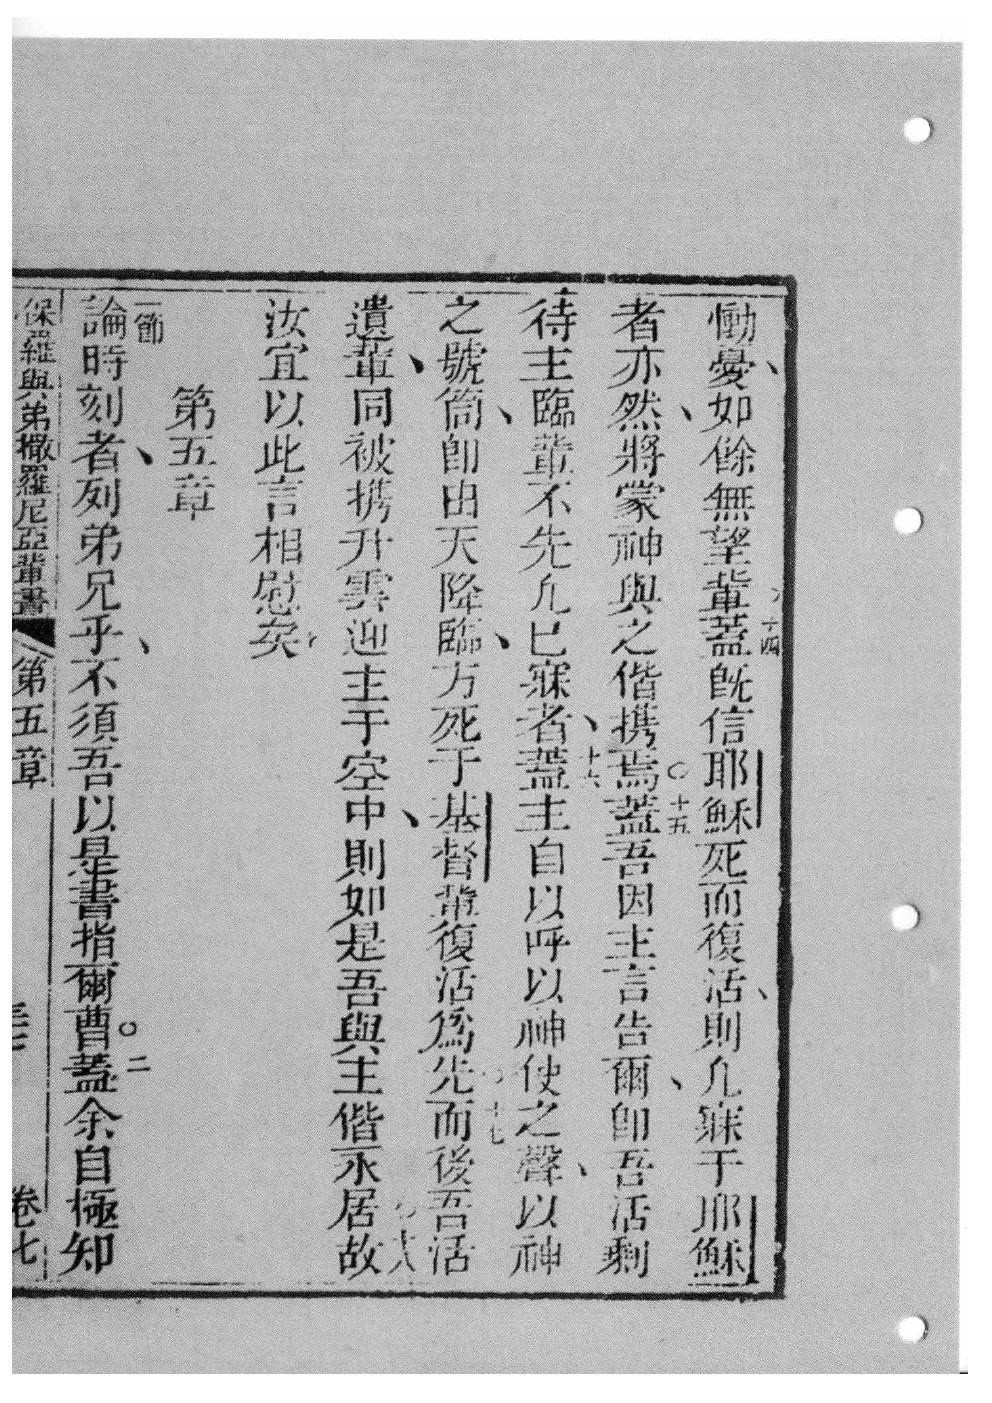 慟憂如餘無望輩蓋旣信耶穌死而復活則凢寐于耶穌
十四
者亦然將蒙神與之偕携焉蓋吾因主言告爾卽吾活剩
十五
待主臨輩不先凢已寐者蓋主自以呼以神使之聲以神
十六
之號筒卽由天降臨方死于基督輩復活爲先而後吾活
十七
遺輩同被携升雲迎主于空中則如是吾與主偕永居故
十八
汝宜以此言相慰矣
第五章
一節
論時刻者列弟兄乎不須吾以是書指爾曹蓋余自極知
二
保羅與弟撒羅尼亞輩書 第五章 卷七